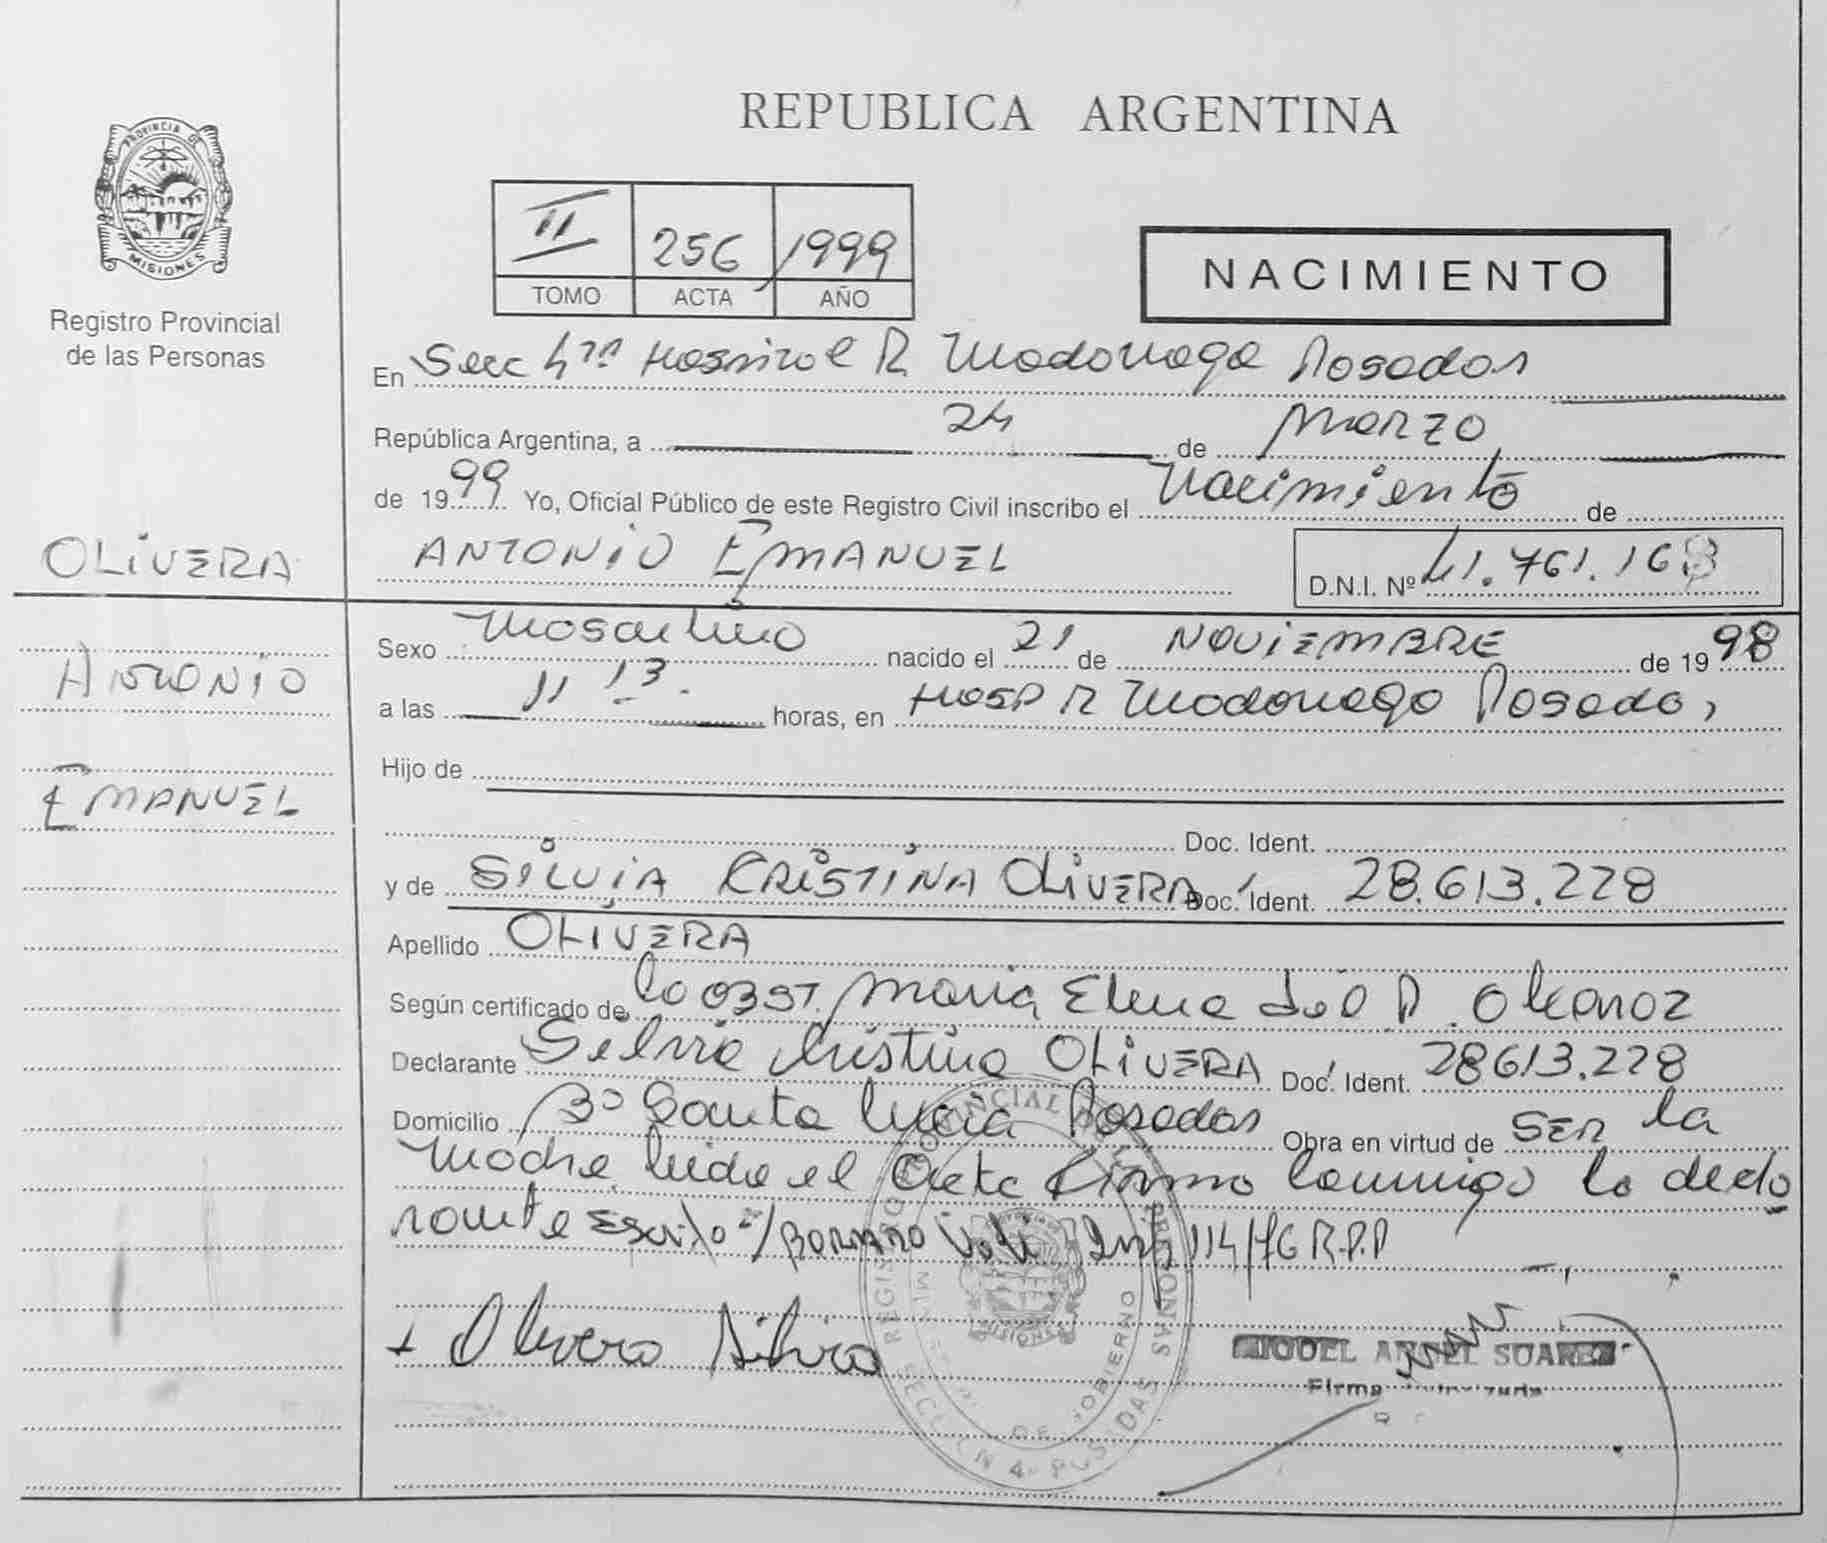 PROVINCIA DE
MISIONES
Registro Provincial
de las Personas
REPUBLICA ARGENTINA
II 256 1999
TOMO ACTA AÑO
NACIMIENTO
En Secc 4ta Hospital R Madariaga Posadas
República Argentina, a 24 de Marzo
de 1999 Yo, Oficial Público de este Registro Civil inscribo el Nacimiento de
OLIVERA
ANTONIO EMANUEL D.N.I. Nº 41.761.168
ANTONIO
EMANUEL
Sexo Masculino nacido el 21 de NOVIEMBRE de 1998
a las 11 13. horas, en HOSP R Madariaga Posadas
Hijo de
Doc. Ident.
y de SILVIA CRISTINA OLIVERA Doc. Ident. 28.613.228
Apellido OLIVERA
Según certificado de la OBST. Maria Elena del P. Olearoz
Declarante Silvia Cristina OLIVERA Doc. Ident. 28613.228
Domicilio Bº Santa Lucia Posadas Obra en virtud de SER la
Madre leida el Acta Firma conmigo la decla
rante Escrito s/ BORRADO 114/76 R.P.P
+ Olivera Silvia
ANGEL SUAREZ
Firma Autorizada
REGISTRO PROVINCIAL DE LAS PERSONAS
SECCION 4ª POSADAS
DE GOBIERNO
MISIONES